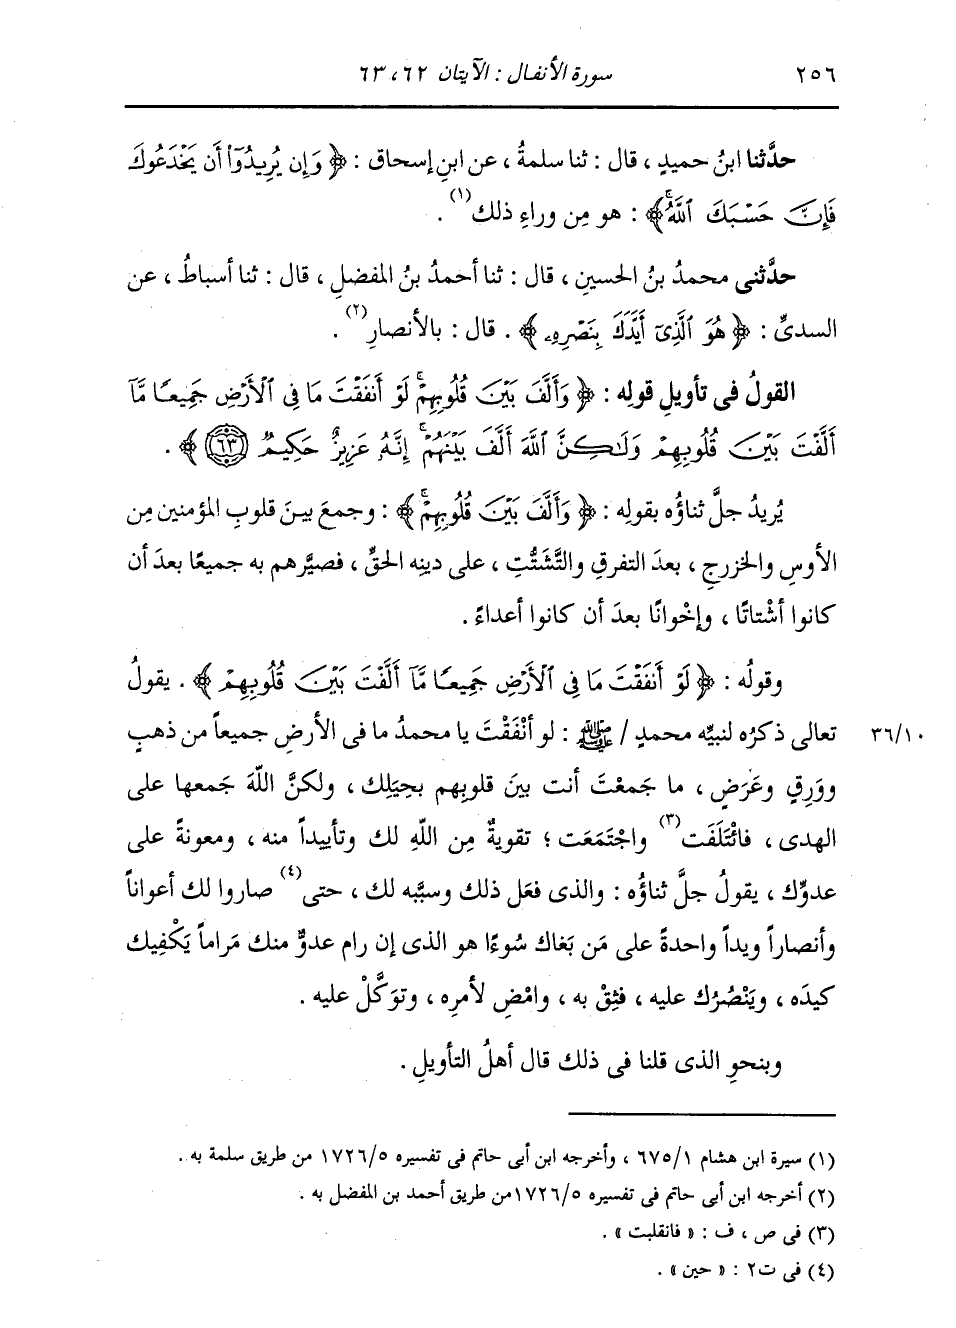 ٢٥٦ سورة الأنفال : الآيتان ٦٢، ٦٣
حدَّثنا ابنُ حميدٍ ، قال : ثنا سلمةُ ، عن ابنِ إسحاق : ﴿ وَإِن يُرِيدُوٓا أَن يَخْدَعُوكَ
فَإِنَّ حَسْبَكَ ٱللَّهُۚ ﴾ : هو مِن وراءِ ذلك(١) .
حدَّثنى محمدُ بنُ الحسينِ ، قال : ثنا أحمدُ بنُ المفضلِ ، قال : ثنا أسباطُ ، عن
السدىِّ : ﴿ هُوَ ٱلَّذِىٓ أَيَّدَكَ بِنَصْرِهِۦ ﴾ . قال : بالأنصارِ(٢) .
القولُ فى تأويلِ قولِه : ﴿ وَأَلَّفَ بَيْنَ قُلُوبِهِمْۚ لَوْ أَنفَقْتَ مَا فِى ٱلْأَرْضِ جَمِيعًا مَّآ
أَلَّفْتَ بَيْنَ قُلُوبِهِمْ وَلَٰكِنَّ ٱللَّهَ أَلَّفَ بَيْنَهُمْۚ إِنَّهُۥ عَزِيزٌ حَكِيمٌ ٦٣ ﴾ .
يُريدُ جلَّ ثناؤُه بقولِه : ﴿ وَأَلَّفَ بَيْنَ قُلُوبِهِمْۚ ﴾ : وجمعَ بينَ قلوبِ المؤمنين مِن
الأوسِ والخزرجِ ، بعدَ التفرقِ والتَّشَتُّتِ ، على دينِه الحقِّ ، فصيَّرهم به جميعًا بعدَ أن
كانوا أشْتاتًا ، وإخْوانًا بعدَ أن كانوا أعداءً .
وقولُه : ﴿ لَوْ أَنفَقْتَ مَا فِى ٱلْأَرْضِ جَمِيعًا مَّآ أَلَّفْتَ بَيْنَ قُلُوبِهِمْ ﴾ . يقولُ
٣٦/١٠ تعالى ذكرُه لنبيِّه محمدٍ / ﷺ : لو أنْفَقْتَ يا محمدُ ما فى الأرضِ جميعاً من ذهبٍ
ووَرِقٍ وعَرَضٍ ، ما جمعْتَ أنت بينَ قلوبِهم بحِيَلِك ، ولكنَّ اللَّهَ جَمعها على
الهدى ، فائْتَلَفَت(٣) واجْتَمَعَت ؛ تقويةٌ مِن اللَّهِ لك وتأييداً منه ، ومعونةً على
عدوِّك ، يقولُ جلَّ ثناؤُه : والذى فعَل ذلك وسبَّبه لك ، حتى(٤) صاروا لك أعواناً
وأنصاراً ويداً واحدةً على مَن بَغاك سُوءًا هو الذى إن رام عدوٌّ منك مَراماً يَكْفِيك
كيدَه ، ويَنْصُرُك عليه ، فثِقْ به ، وامْضِ لأمرِه ، وتوكَّلْ عليه .
وبنحوِ الذى قلنا فى ذلك قال أهلُ التأويلِ .
(١) سيرة ابن هشام ٦٧٥/١ ، وأخرجه ابن أبى حاتم فى تفسيره ١٧٢٦/٥ من طريق سلمة به .
(٢) أخرجه ابن أبى حاتم فى تفسيره ١٧٢٦/٥من طريق أحمد بن المفضل به .
(٣) فى ص ، ف : « فانقلبت » .
(٤) فى ت٢ : « حين » .